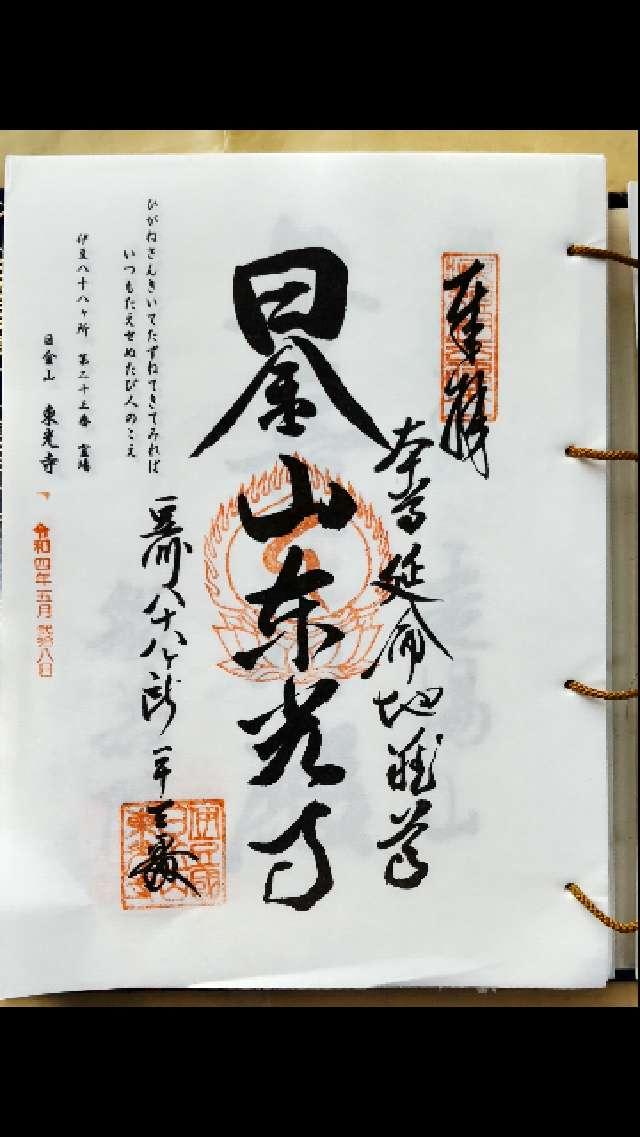 奉拝
本尊延命地蔵尊
日金山東光寺
豆州八十八ヶ所
ひがねさんきいてたずねてきてみれば
いつもたえせぬたび人のこえ
伊豆八十八ヶ所 第二十三番 霊場
日金山 東光寺
令和四年五月弐拾八日